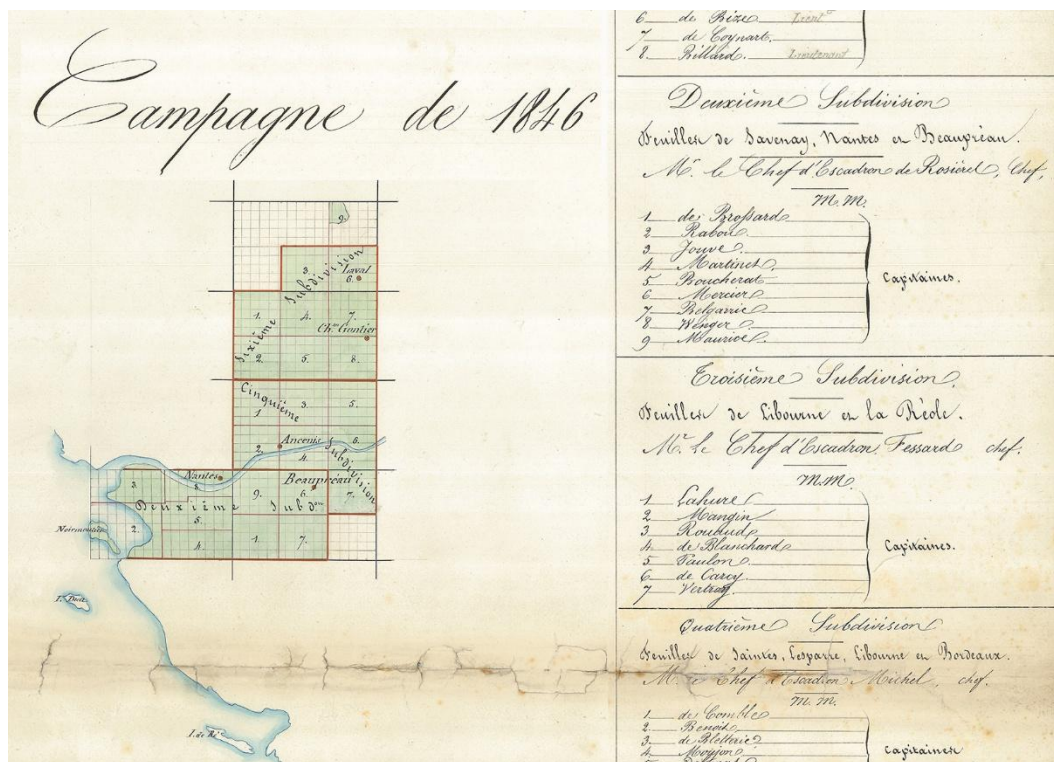 Campagne de 1846
9.
3.
Laval
6.
Sixième Subdivision
1.
4.
7.
Ch.au Gontier
2.
5.
8.
Cinquième Subdivision
1
3.
5.
Ancenis
2.
4.
6.
7.
Nantes
Beaupréau
3.
9.
6.
Deuxième Subd.on
5.
2.
4.
1.
7.
Noirmoutier
I. Dieu
I. de Ré
6 de Bize Lieut.t
7 de Coynart.
8. Billard. Lieutenant
Deuxième Subdivision
Feuilles de Savenay, Nantes et Beaupréau.
Mr. le Chef d'Escadron de Rosières, Chef,
M.M.
1 de Brossard
2 Rabou
3 Jouve
4 Martinet
5 Boucherat
6 Mercier
7 Belgarric
8 Wenger
9 Maurice
Capitaines.
Troisième Subdivision.
Feuilles de Libourne et la Réole.
Mr. le Chef d'Escadron Fessard chef.
M.M.
1 Lahure
2 Mangin
3 Roubaud
4 de Blanchard
5 Faulon
6 de Carcy
7 Vertray
Capitaines.
Quatrième Subdivision
Feuilles de Saintes, Lesparre, Libourne et Bordeaux.
M. le Chef d'Escadron Michel, chef.
M.M.
1 de Comble
2 Benoit
3 de Bletterie
4 Moujon
Capitaines